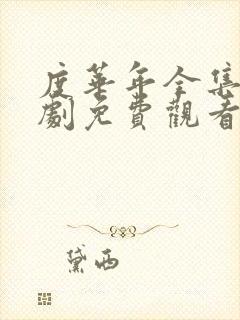 度華年全集
劇免費觀看
黛西